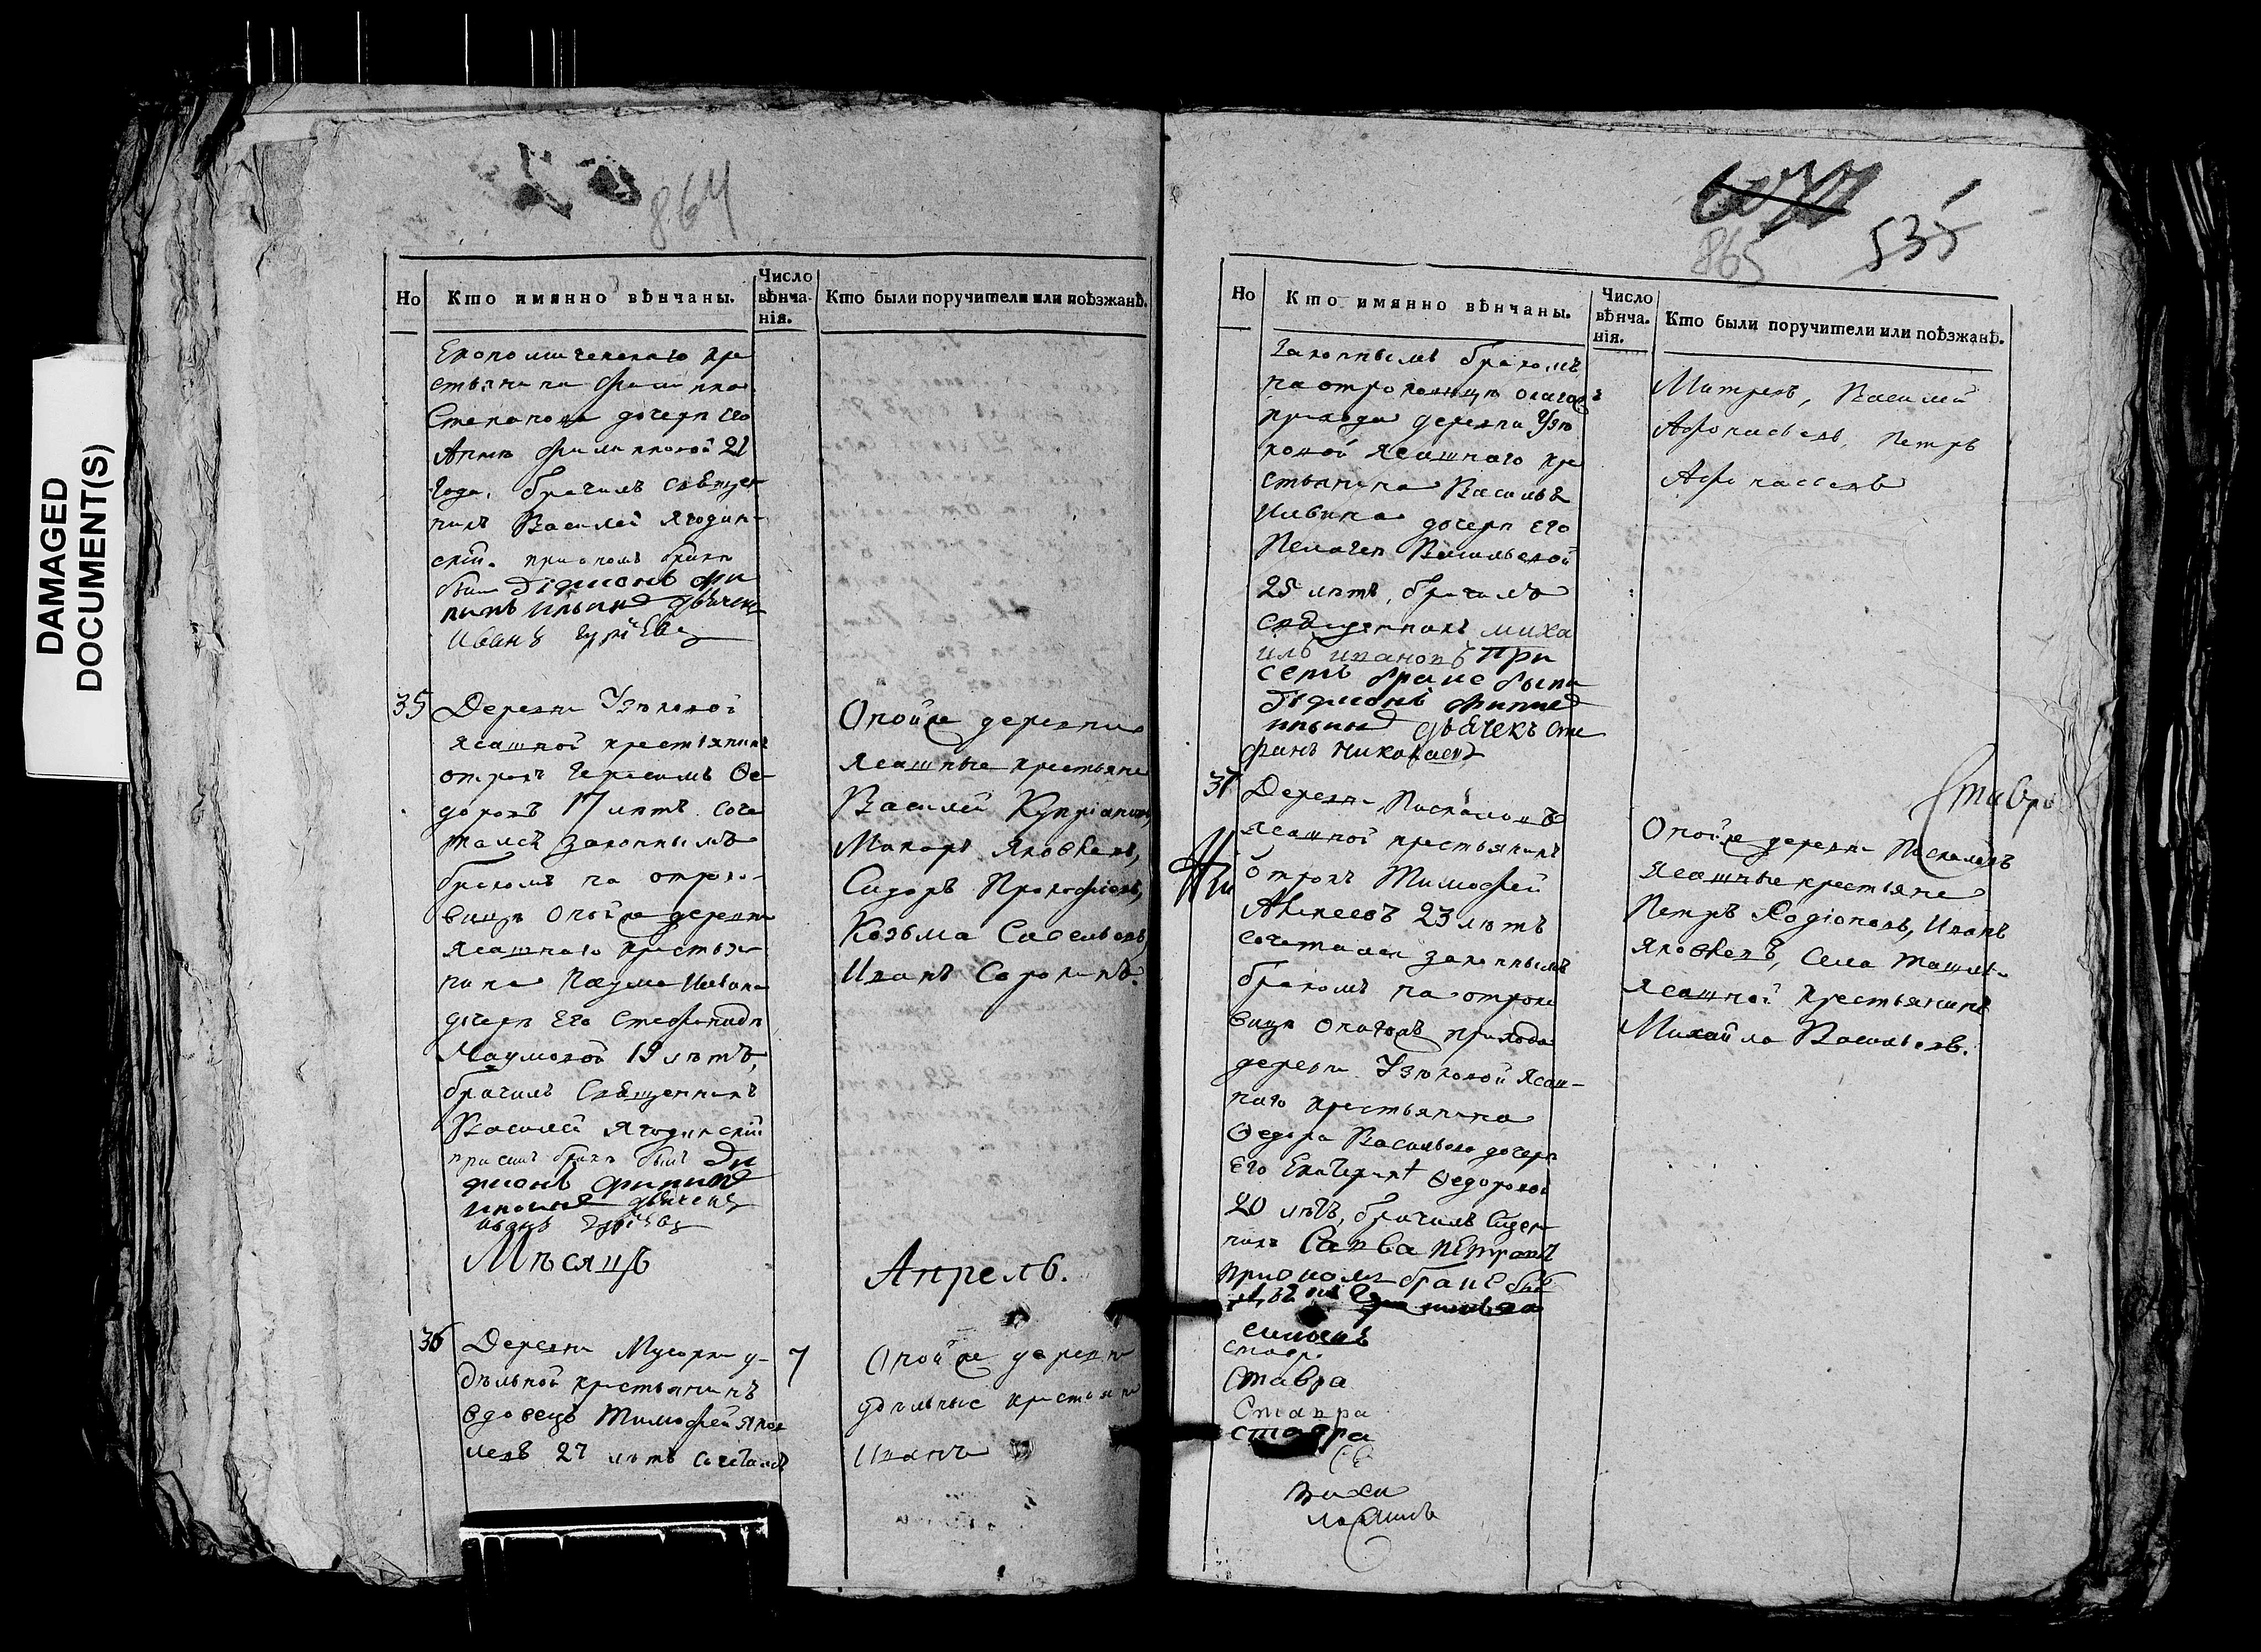 DAMAGED
DOCUMENT(S)
864
Но
Кто имянно вѣнчаны.
Число
вѣнча-
нія.
Кто были поручители или поѣзжанѣ.
Економическаго кре
стьянина Филиппа
Степанова дочери его
Анне Филипповой 21
года, брачилъ священ
никъ Василей Ягодин-
скій. при ономъ браке
были Діяконъ Фи
липъ Ильинъ дьячекъ
Иванъ
35 Деревни Узюковой
ясашной крестьянинъ
отрокъ Герасимъ Ѳе-
доровъ 17 летъ соче
тался законнымъ
бракомъ на отроко-
вице оной же деревни
ясашнаго крестья
нина Наума Иванова
дочери его Стефаниде
Наумовой 19 летъ,
брачилъ Священникъ
Василей Ягодинскій
при семъ браке былъ Ди
яконъ Филипъ
Ильинъ дьячекъ
иванъ
Оной же деревни
ясашные крестьяне
Василей Купріяновъ,
Макаръ Яковлевъ,
Сидоръ Прокофьевъ,
Козьма Савельевъ,
Иванъ Сорокинъ.
Мѣсяцъ
Апрель.
36 Деревни Мусорки у-
дельной крестьянинъ
вдовецъ Тимофей Яков
левъ 27 летъ сочетался
7
Оной же деревни
удельные крестьяне
Иванъ
865
535
Но
Кто имянно вѣнчаны.
Число
вѣнча.
нія.
Кто были поручители или поѣзжанѣ.
законнымъ бракомъ
на отроковице онагожъ
прихода деревни Узю
ковой ясашнаго кре
стьянина Василья
Ильина дочери его
Пелагеи Васильевой
25 летъ, брачилъ
священникъ миха
илъ ивановъ при
семъ браке были
Діяконъ Филипъ
ильинъ дьячекъ Сте
фанъ Николаевъ
Василей
Афонасьевъ, Петръ
Афонасьевъ
37 Деревни
ясашной крестьянинъ
отрокъ Тимофей
Алексеевъ 23 летъ
сочетался законнымъ
бракомъ на отроко
вице онагожъ прихода
деревни Узюковой ясаш-
наго крестьянина
Ѳедора Васильева дочери
его Екатерине Ѳедоровой
20 летъ, брачилъ Свящ
никъ Савва Петровъ
при ономъ браке
Ставр
Оной же деревни
ясашные крестьяне
Петръ Родіоновъ, Иванъ
Яковлевъ, Села Ташлы
ясашной крестьянинъ
Михайла Васильевъ.
Ставра
Ставра
ставра